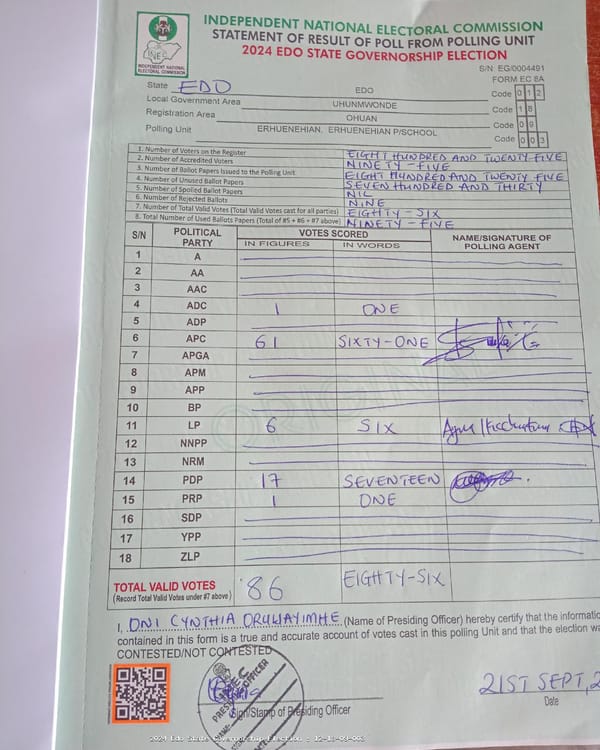 INEC
INDEPENDENT NATIONAL
ELECTORAL COMMISSION
INDEPENDENT NATIONAL ELECTORAL COMMISSION
STATEMENT OF RESULT OF POLL FROM POLLING UNIT
2024 EDO STATE GOVERNORSHIP ELECTION
S/N: EG/0004491
FORM EC 8A
State EDO EDO Code 0 1 2
Local Government Area UHUNMWONDE Code 1 8
Registration Area OHUAN Code 0 9
Polling Unit ERHUENEHIAN, ERHUENEHIAN P/SCHOOL Code 0 0 3
1. Number of Voters on the Register EIGHT HUNDRED AND TWENTY FIVE
2. Number of Accredited Voters NINETY-FIVE
3. Number of Ballot Papers Issued to the Polling Unit EIGHT HUNDRED AND TWENTY FIVE
4. Number of Unused Ballot Papers SEVEN HUNDRED AND THIRTY
5. Number of Spoiled Ballot Papers NIL
6. Number of Rejected Ballots NINE
7. Number of Total Valid Votes (Total Valid Votes cast for all parties) EIGHTY-SIX
8. Total Number of Used Ballots Papers (Total of #5 + #6 + #7 above) NINETY-FIVE
S/N POLITICAL PARTY VOTES SCORED NAME/SIGNATURE OF POLLING AGENT
IN FIGURES IN WORDS
1 A
2 AA
3 AAC
4 ADC 1 ONE
5 ADP
6 APC 61 SIXTY-ONE
7 APGA
8 APM
9 APP
10 BP
11 LP 6 SIX
12 NNPP
13 NRM
14 PDP 17 SEVENTEEN
15 PRP 1 ONE
16 SDP
17 YPP
18 ZLP
TOTAL VALID VOTES 86 EIGHTY-SIX
(Record Total Valid Votes under #7 above)
I, ONI CYNTHIA ORUWAYIMHE (Name of Presiding Officer) hereby certify that the informatio
contained in this form is a true and accurate account of votes cast in this polling Unit and that the election wa
CONTESTED/NOT CONTESTED
21ST SEPT, 2
Sign/Stamp of Presiding Officer Date
2024 Edo State Governorship Election : 12-18-09-003